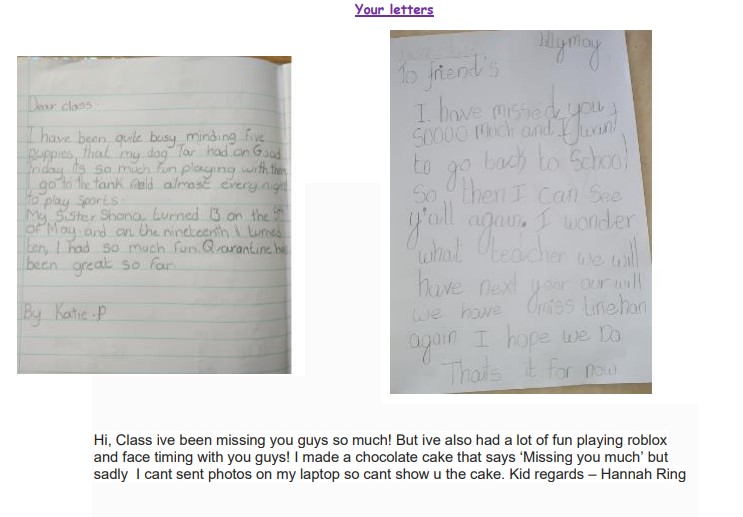 Your letters
Dear class
I have been quite busy minding five
puppies, that my dog Tar had on Good
Friday Its so much fun playing with them
I go to the tank field almost every night
to play sports.
My Sister Shona turned 13 on the
of May and on the nineteenth I turned
ten, I had so much fun. Quarantine has
been great so far
By Katie .P
Illymay
To friend's
I have missed you
soooo much and I want
to go back to School
So then I can See
y'all again. I wonder
what teacher we will
have next year our will
we have miss Linehan
again I hope we Do
Thats it for now
Hi, Class ive been missing you guys so much! But ive also had a lot of fun playing roblox
and face timing with you guys! I made a chocolate cake that says ‘Missing you much’ but
sadly  I cant sent photos on my laptop so cant show u the cake. Kid regards – Hannah Ring